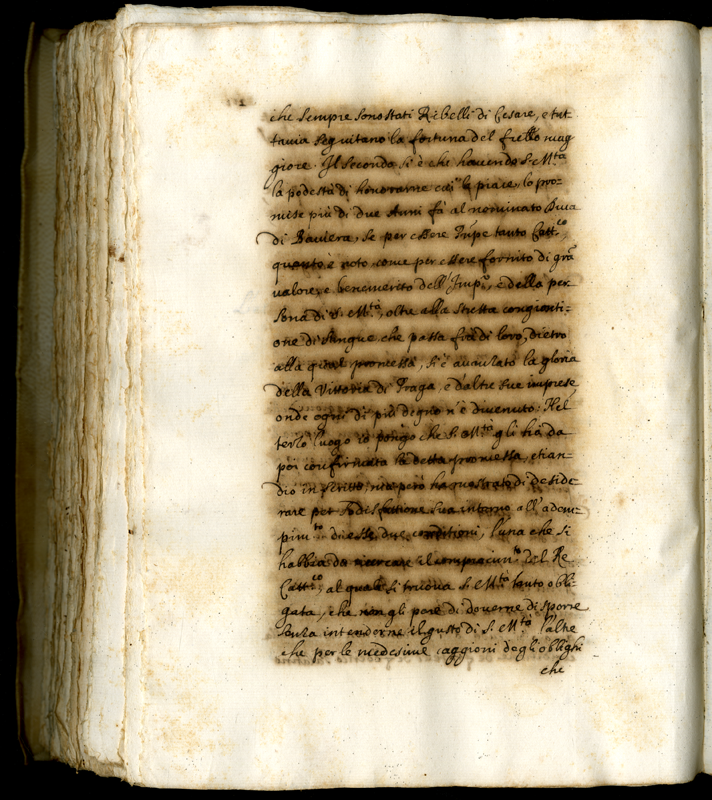 che sempre sono stati Ribelli di Cesare, e tut-
tavia seguitano la fortuna del frello mag
giore. Il secondo si è che havendo S. M.tà
la podestà di honorarne cui le piace, lo pro-
mise più di due Anni fà al nominato Duca
di Baviera, se per essere Prñpe tanto Catt.co,
quanto è noto, come per essere fornito di grã
valore, e benemerito dell' Imp.o, e della per
sona di S. M.tà, oltre alla stretta congionti-
one di sangue che passa frà di loro, dietro
alla qual promessa, si è avanzato la gloria
della Vittoria di Praga, e d'altre sue imprese
onde ogni dì più degno n'è divenuto: Nel
terzo luogo io pongo che S. M.tà gli hà da
poi confirmata la detta promessa, etian-
dio in scritto, mà però hà mostrato di deside
rare per sodisfattione sua intorno all' adem-
pim.to di esse due conditioni, l'una che si
habbia da ricercare il compiacim.to del Re
Catt.co, al quale si truova S. M.tà tanto obli-
gata, che non gli pare di doverne disporre
senza intenderne il gusto di S. M.tà l'altre
che per le medesime caggioni degli oblighi
che